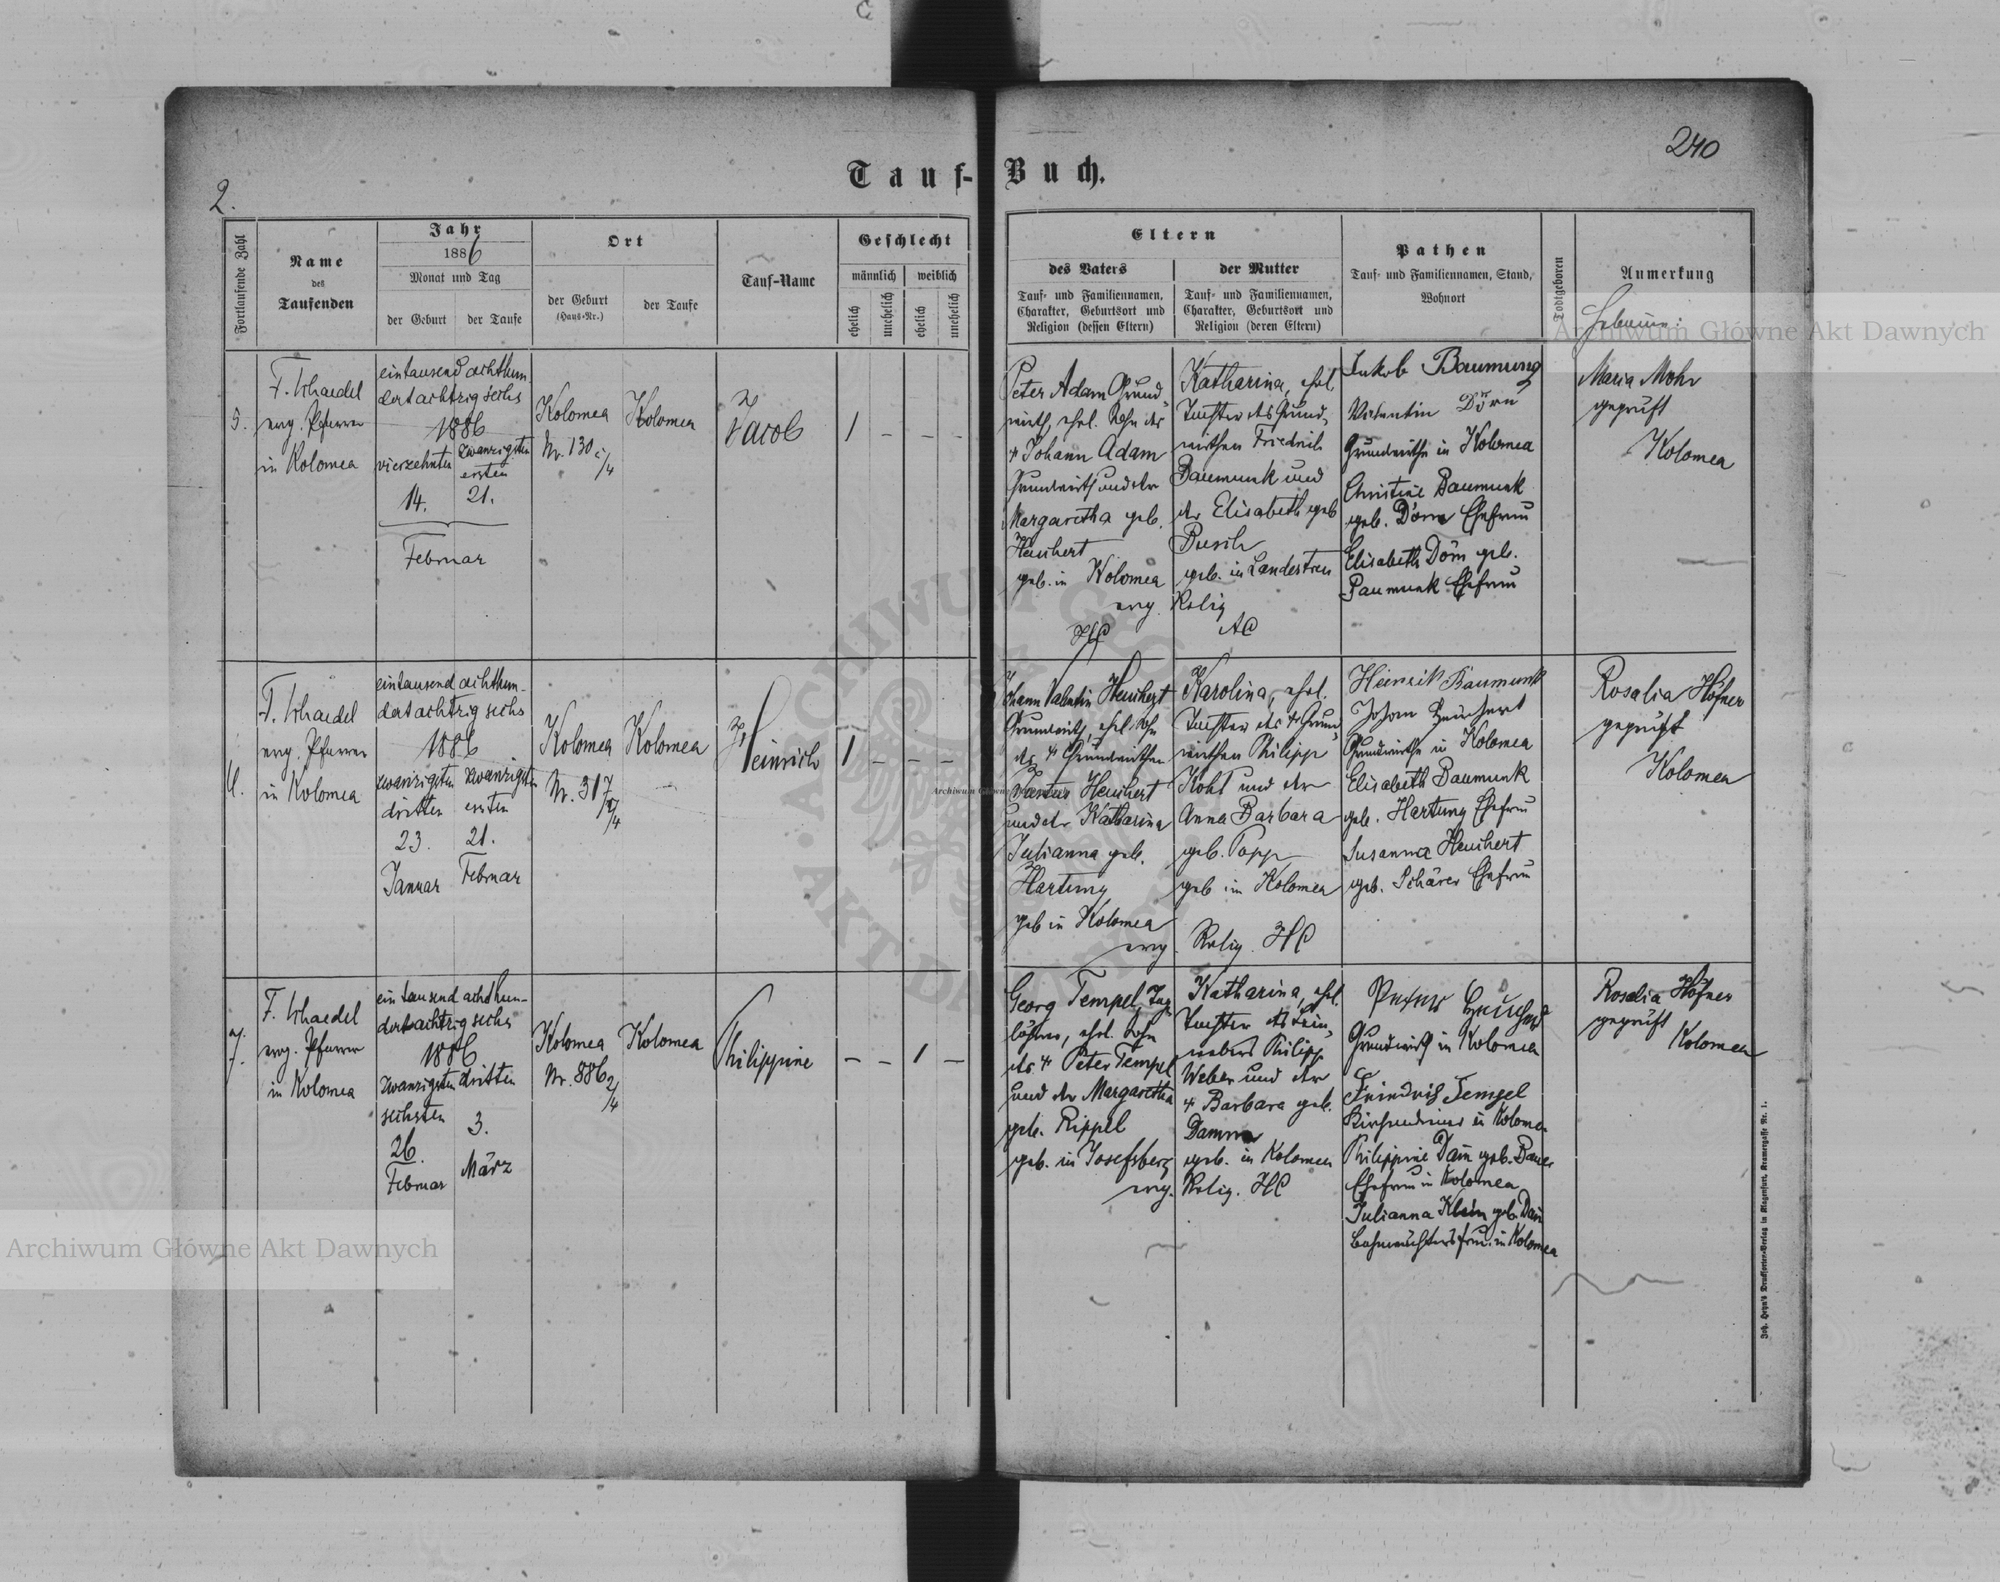 240
Tauf-Buch.
2.
Fortlaufende Zahl
Name
des
Taufenden
Jahr
1886
Monat und Tag
der Geburt
der Taufe
Ort
der Geburt
(Haus-Nr.)
der Taufe
Tauf-Name
Geschlecht
männlich
weiblich
ehelich
unehelich
ehelich
unehelich
Eltern
des Vaters
Tauf- und Familiennamen,
Charakter, Geburtsort und
Religion (dessen Eltern)
der Mutter
Tauf- und Familiennamen,
Charakter, Geburtsort und
Religion (deren Eltern)
Pathen
Tauf- und Familiennamen, Stand,
Wohnort
Todtgeboren
Anmerkung
Hebamme:
5.
F. Schaedel
evg. Pfarrer
in Kolomea
eintausend achthun-
dert achtzig sechs
1886
vierzehnten
14.
zwanzigsten
ersten
21.
Februar
Kolomea
Nr. 130
Kolomea
Jacob
1 – – –
Peter Adam Grund-
wirth, ehel. Sohn des
† Johann Adam
Grundwirth und der
Margaretha geb.
Heuchert
geb. in Kolomea
evg.
HC
Katharina, ehel.
Tochter des Grund-
wirthen Friedrich
Baumunk und
der Elisabeth geb
Busch
geb. in Landestreu
Relig
AC
Jakob Baumung
Valentin Dörn
Grundwirthe in Kolomea
Christine Baumunk
geb. Dörn Ehefrau
Elisabeth Dörn geb.
Baumunk Ehefrau
Maria Mohr
geprüft
Kolomea
6.
F. Schaedel
evg. Pfarrer
in Kolomea
eintausend achthun-
dert achtzig sechs
1886
zwanzigsten
dritten
23.
Januar
zwanzigsten
ersten
21.
Februar
Kolomea
Nr. 317
Kolomea
Heinrich
1 – – –
Johann Valentin Heuchert
Grundwirth, ehel. Sohn
des † Grundwirthen
Heuchert
und der Katharina
Julianna geb.
Hartung
geb in Kolomea
evg.
Karolina, ehel.
Tochter des † Grund-
wirthen Philipp
Kohl und der
Anna Barbara
geb. Popp
geb in Kolomea
Relig. HC
Heinrich Baumunk
Johan Heuchert
Grundwirthe in Kolomea
Elisabeth Baumunk
geb. Hartung Ehefrau
Susanna Heuchert
geb. Schärer Ehefrau
Rosalia Höfner
geprüft
Kolomea
7.
F. Schaedel
evg. Pfarrer
in Kolomea
ein tausend achthun-
dert achtzig sechs
1886
zwanzigsten
sechsten
26.
Februar
dritten
3.
März
Kolomea
Nr. 886
Kolomea
Philippine
– – 1 –
Georg Tempel Tag-
löhner, ehel. Sohn
des † Peter Tempel
und der Margaretha
geb. Rippel
geb. in Josefsberg
evg.
Katharina, ehel.
Tochter des Lein-
webers Philipp
Weber und der
† Barbara geb.
Damm
geb. in Kolomea
Relig. HC
Peter Heuchert
Grundwirth in Kolomea
Friedrich Tempel
Kirchendiener in Kolomea
Philippine Dain geb. Bauer
Ehefrau in Kolomea
Julianna Klein geb. Dain
Bahnwächtersfrau in Kolomea
Rosalia Höfner
geprüft
Kolomea
Joh. Heyn's Drucksorten-Verlag in Klagenfurt, Kramergasse Nr. 1.
Archiwum Główne Akt Dawnych
Archiwum Główne Akt Dawnych